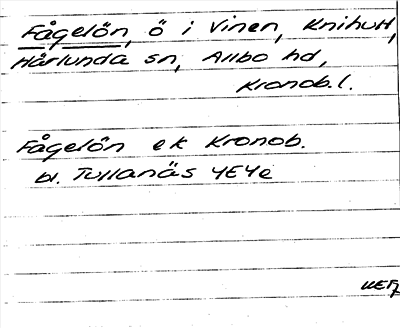 Fågelön, ö i Vinen, Knihult,
Hårlunda sn, Allbo hd,
Kronob. l.
Fågelön ek Kronob.
bl. Tullanäs 4E4e